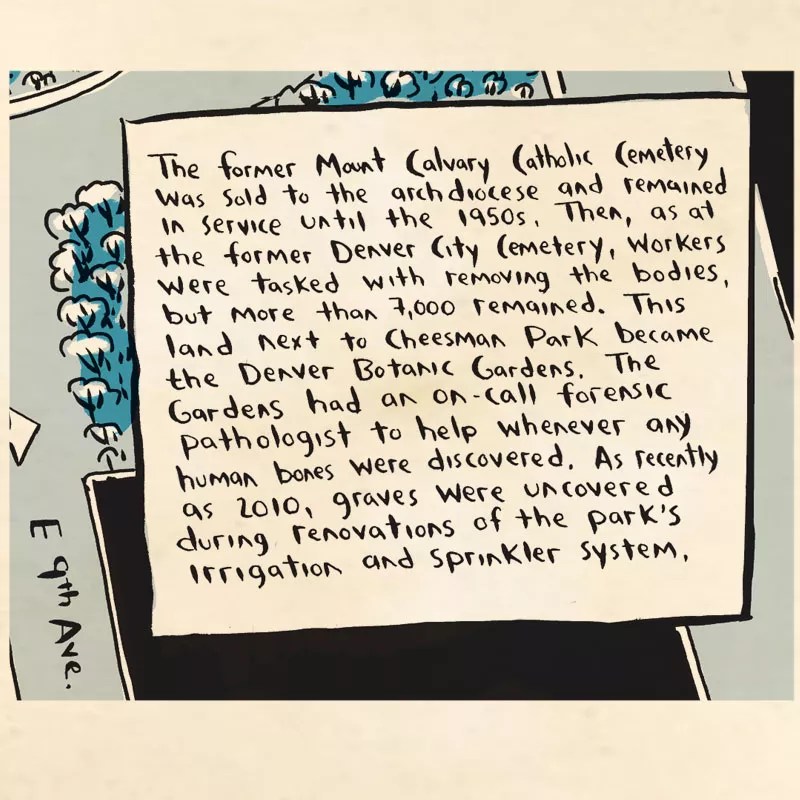 The former Mount Calvary Catholic Cemetery
was sold to the archdiocese and remained
in service until the 1950s. Then, as at
the former Denver City Cemetery, workers
were tasked with removing the bodies,
but more than 7,000 remained. This
land next to Cheesman Park became
the Denver Botanic Gardens. The
Gardens had an on-call forensic
pathologist to help whenever any
human bones were discovered. As recently
as 2010, graves were uncovered
during renovations of the park's
irrigation and sprinkler system.
E 9th Ave.